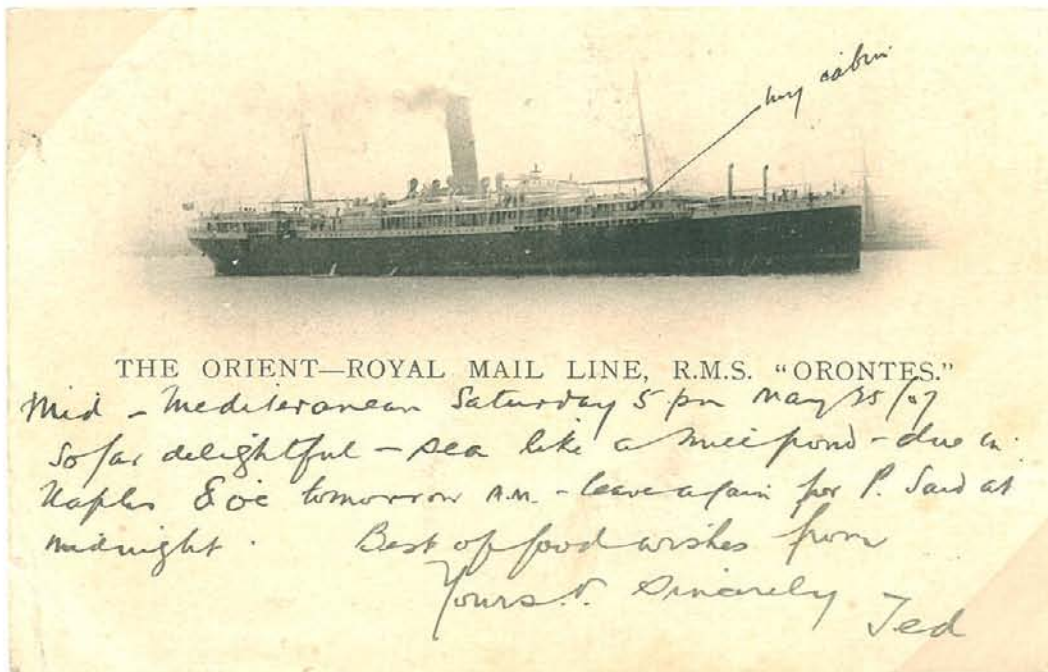 my cabin
THE ORIENT—ROYAL MAIL LINE, R.M.S. “ORONTES.”
Mid - Mediteranean Saturday 5 pm May 25/07
So far delightful - sea like a millpond - due in
Naples 8 o'c tomorrow A.M. - leave again for P. Said at
midnight. Best of good wishes from
Yours v. Sincerely
Ted